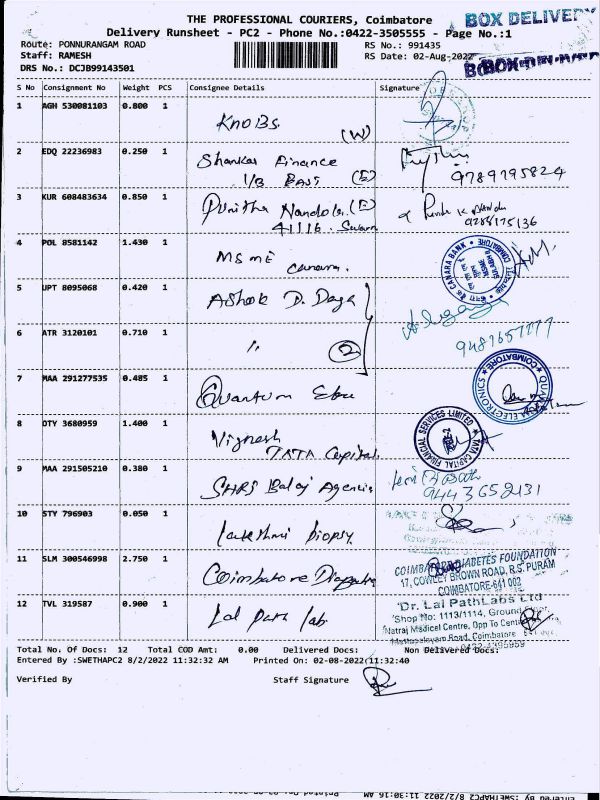 THE PROFESSIONAL COURIERS, Coimbatore
BOX DELIVERY
Delivery Runsheet - PC2 - Phone No.:0422-3505555 - Page No.:1
Route: PONNURANGAM ROAD
RS No.: 991435
Staff: RAMESH
RS Date: 02-Aug-2022
DRS No.: DCJB99143501
S No Consignment No Weight PCS Consignee Details Signature
1 AGH 530081103 0.800 1 KnoBs (W)
2 EDQ 22236983 0.250 1 Shankar Finance
1/B East (E) 9789795824
3 KUR 608483634 0.850 1 Punitha Nandola (E)
41/16 9288175136
4 POL 8581142 1.430 1 MSME Canara. CANARA BANK COIMBATORE
5 UPT 8095068 0.420 1 Ashok D. Daga
6 ATR 3120101 0.710 1 〃 2 9487657777
7 MAA 291277535 0.485 1 Quantum QUANTUM ELECTRONICS COIMBATORE
8 OTY 3680959 1.400 1 Vignesh
TATA Capital TATA CAPITAL FINANCIAL SERVICES LIMITED
9 MAA 291505210 0.380 1 Balaj Agencies 9443652131
10 STY 796903 0.050 1 Lakshmi Biopsy
11 SLM 300546998 2.750 1 Coimbatore Diabetes COIMBATORE DIABETES FOUNDATION
17, COWLEY BROWN ROAD, R.S. PURAM
COIMBATORE-641 002
12 TVL 319587 0.900 1 Lal Path lab Dr. Lal PathLabs Ltd
Shop No: 1113/1114, Ground Floor,
Natraj Medical Centre, Opp To
Mettupalayam Road, Coimbatore
Total No. Of Docs: 12 Total COD Amt: 0.00 Delivered Docs: Non Delivered Docs:
Entered By :SWETHAPC2 8/2/2022 11:32:32 AM Printed On: 02-08-2022 11:32:40
Verified By Staff Signature